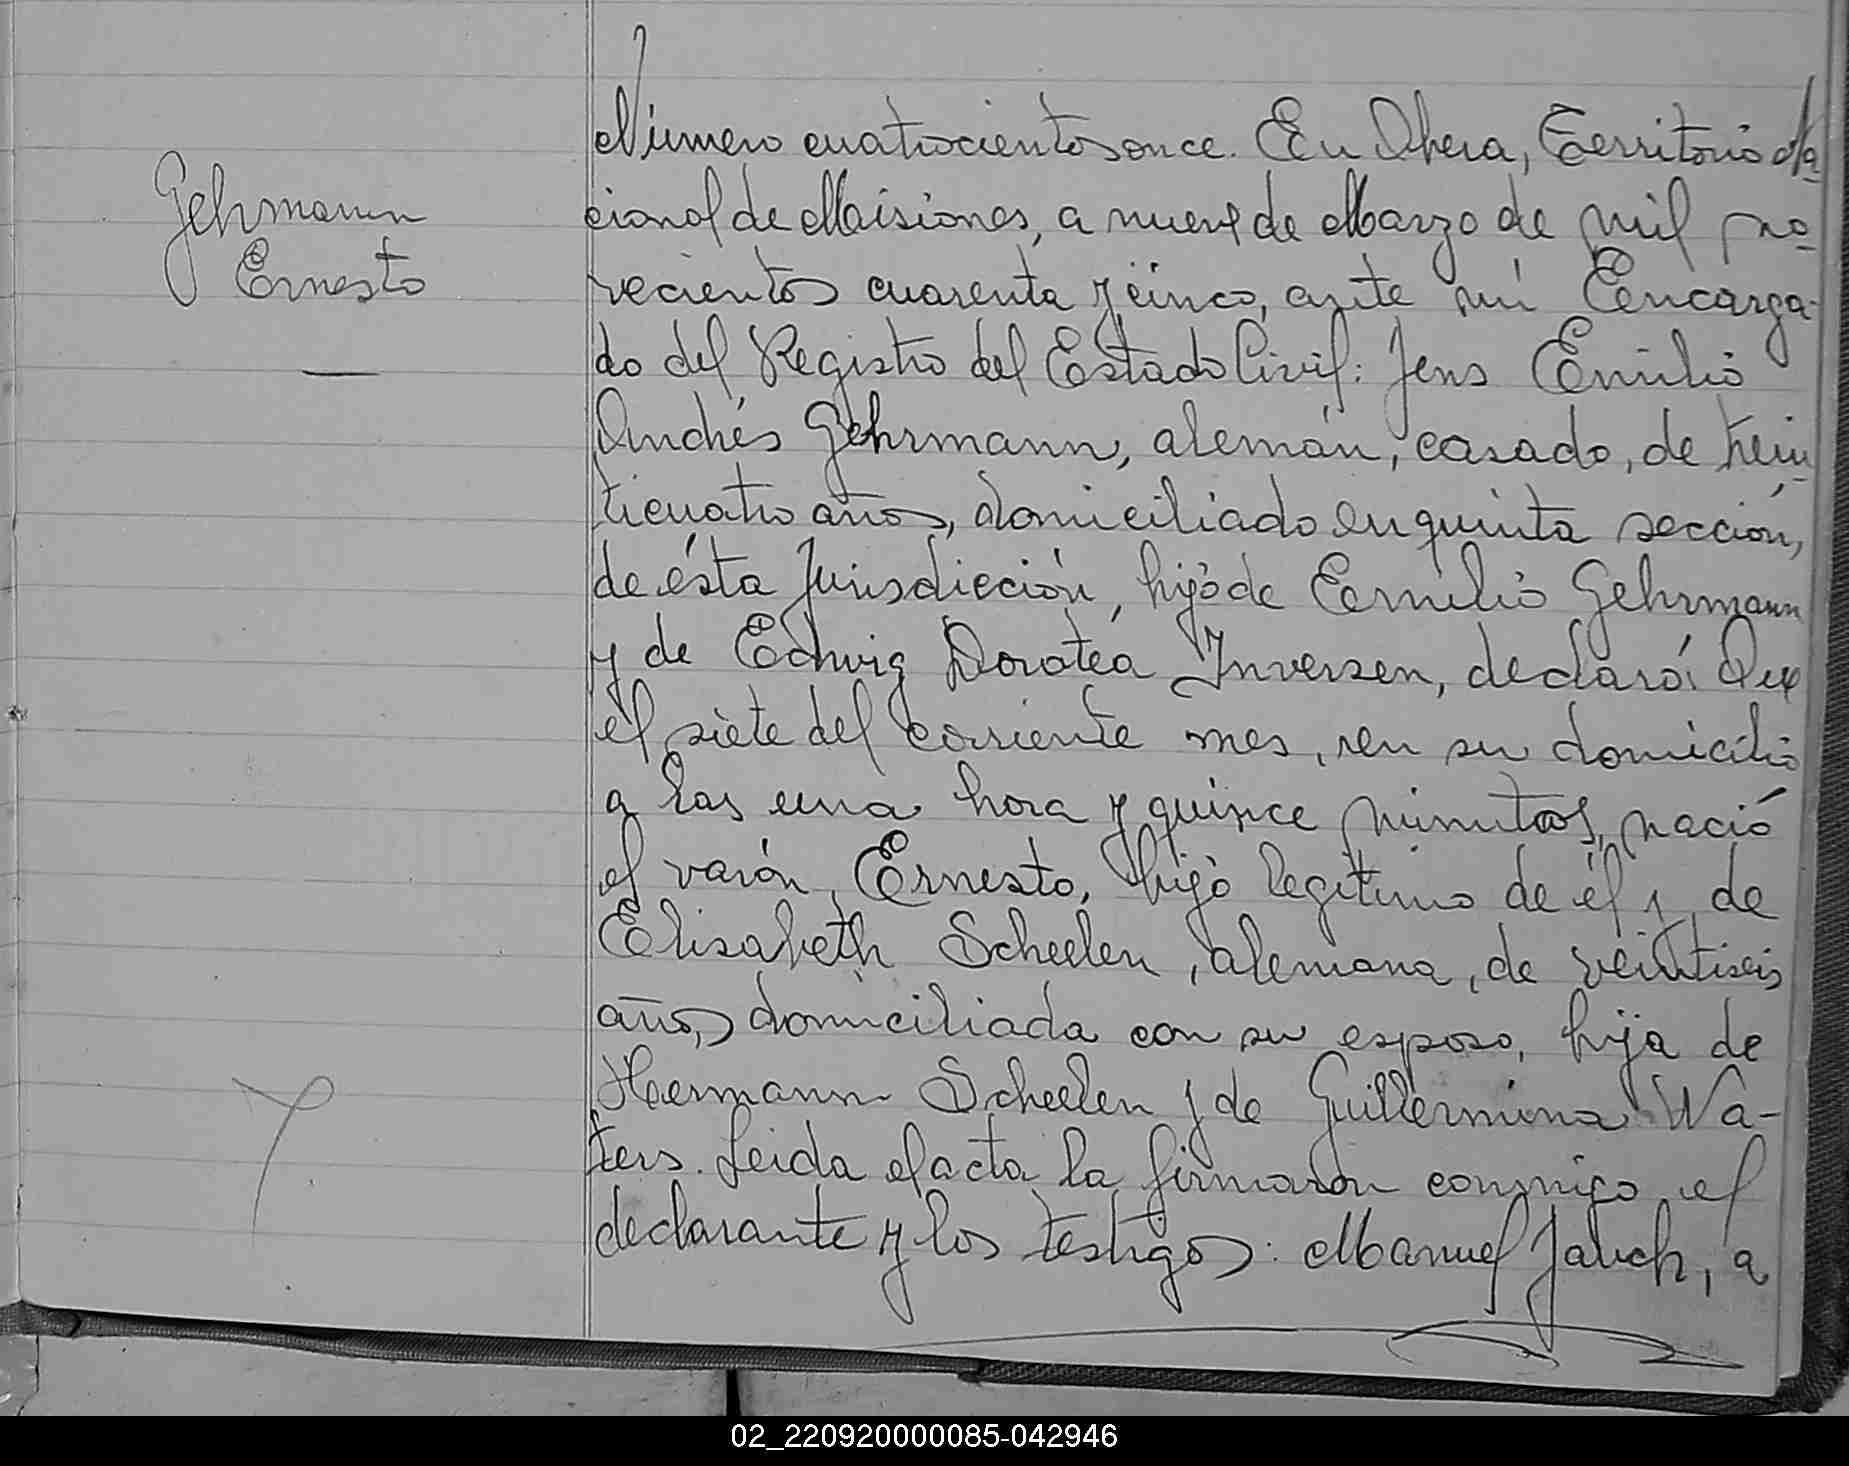 Gehrmann
Ernesto
Número cuatrocientos once. En Obera, Territorio Na
cional de Misiones, a nueve de Marzo de mil no
vecientos cuarenta y cinco, ante mí Encarga-
do del Registro del Estado Civil: Jens Emilio
Andrés Gehrmann, alemán, casado, de trein
ticuatro años, domiciliado en quinta sección,
de ésta Jurisdicción, hijo de Emilio Gehrmann
y de Edwig Dorotea Inversen, declaró: Que
el siete del corriente mes, en su domicilio
a las una hora y quince minutos, nació
el varón, Ernesto, hijo legítimo de él y de
Elisabeth Scheelen, alemana, de veintiseis
años, domiciliada con su esposo, hija de
Hermann Scheelen y de Guillermina Wa-
ters. Leida el acta la firmaron conmigo el
declarante y los testigos: Manuel Jauch, a
02_220920000085-042946